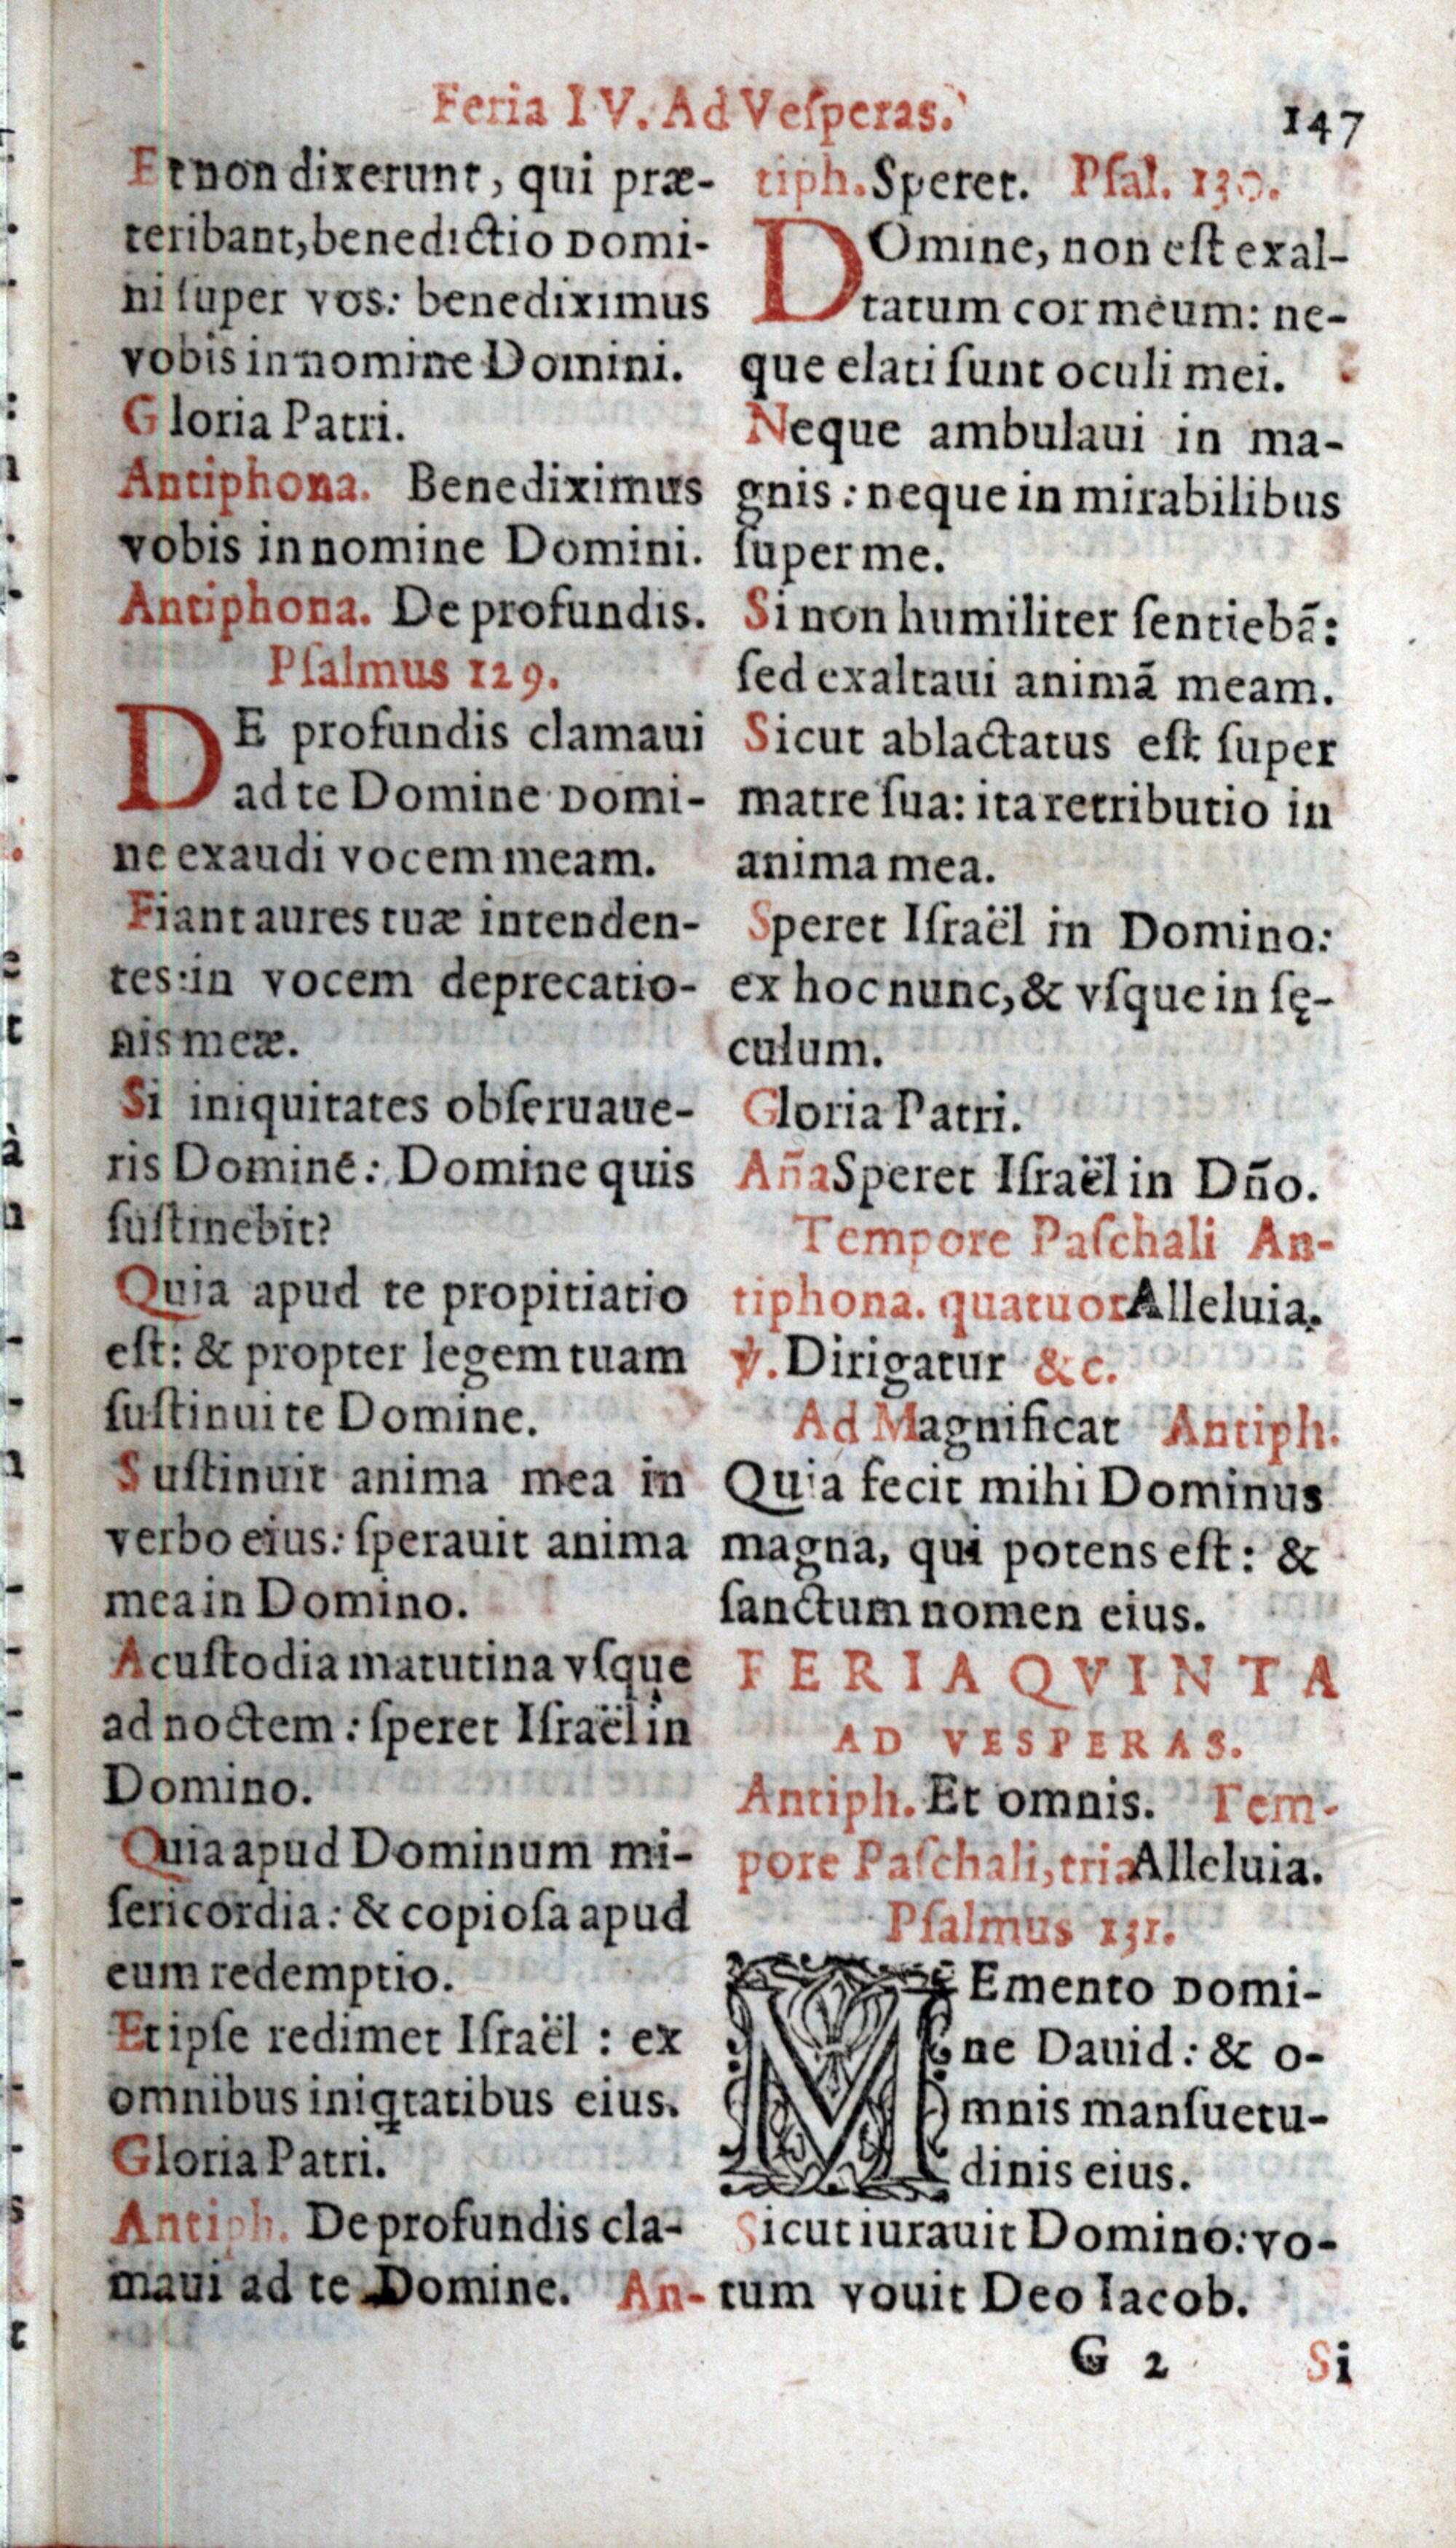 Feria IV. Ad Veſperas.
147
Et non dixerunt, qui præ-
teribant, benedictio Domi-
ni ſuper vos: benediximus
vobis in nomine Domini.
Gloria Patri.
Antiphona. Benediximus
vobis in nomine Domini.
Antiphona. De profundis.
Pſalmus 129.
DE profundis clamaui
ad te Domine Domi-
ne exaudi vocem meam.
Fiant aures tuæ intenden-
tes: in vocem deprecatio-
nis meæ.
Si iniquitates obſeruaue-
ris Domine: Domine quis
ſuſtinebit?
Quia apud te propitiatio
eſt: & propter legem tuam
ſuſtinui te Domine.
Suſtinuit anima mea in
verbo eius: ſperauit anima
mea in Domino.
A cuſtodia matutina vſque
ad noctem: ſperet Iſraël in
Domino.
Quia apud Dominum mi-
ſericordia: & copioſa apud
eum redemptio.
Et ipſe redimet Iſraël : ex
omnibus iniqtatibus eius.
Gloria Patri.
Antiph. De profundis cla-
maui ad te Domine. An-
tiph. Speret. Pſal. 130.
DOmine, non eſt exal-
tatum cor meum: ne-
que elati ſunt oculi mei.
Neque ambulaui in ma-
gnis: neque in mirabilibus
ſuper me.
Si non humiliter ſentiebã:
ſed exaltaui animã meam.
Sicut ablactatus eſt ſuper
matre ſua: ita retributio in
anima mea.
Speret Iſraël in Domino:
ex hoc nunc, & vſque in ſę-
culum.
Gloria Patri.
Aña Speret Iſraël in Dño.
Tempore Paſchali An-
tiphona. quatuor Alleluia.
℣. Dirigatur &c.
Ad Magnificat Antiph.
Quia fecit mihi Dominus
magna, qui potens eſt: &
ſanctum nomen eius.
FERIA QVINTA
AD VESPERAS.
Antiph. Et omnis. Tem-
pore Paſchali, tria Alleluia.
Pſalmus 131.
MEmento Domi-
ne Dauid: & o-
mnis manſuetu-
dinis eius.
Sicut iurauit Domino: vo-
tum vouit Deo Iacob.
G 2 Si